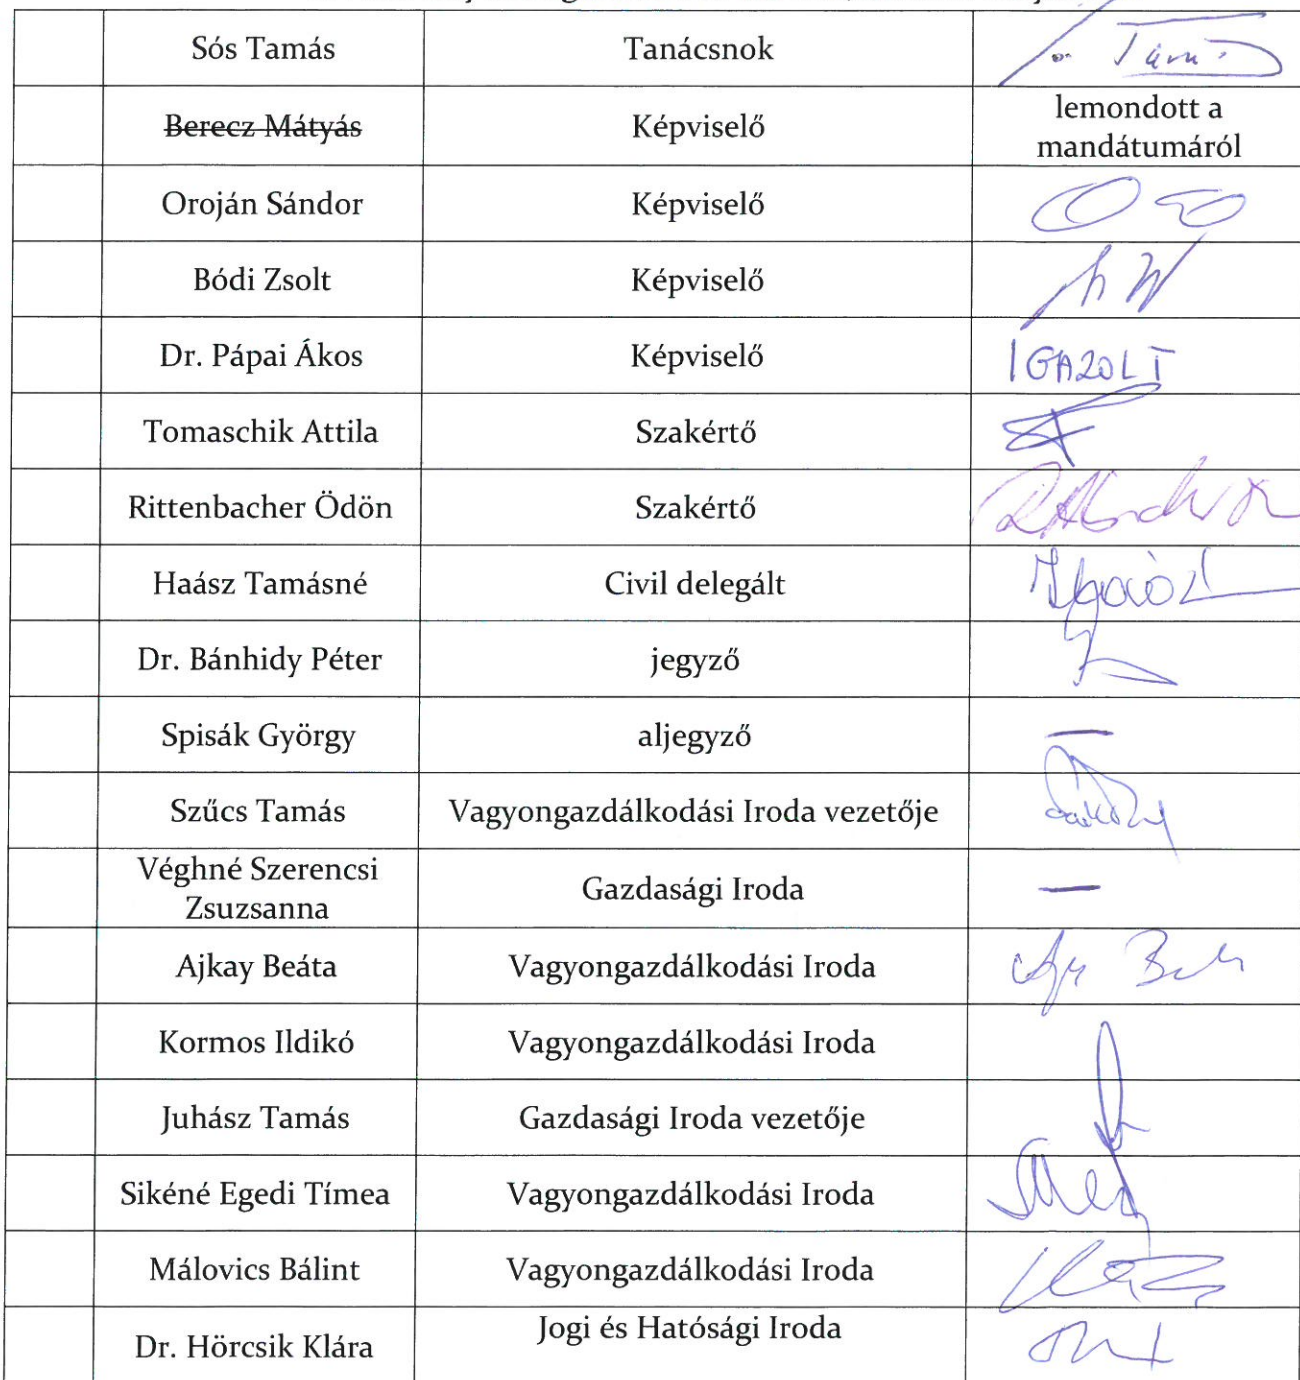 Sós Tamás Tanácsnok
Berecz Mátyás Képviselő lemondott a
mandátumáról
Oroján Sándor Képviselő
Bódi Zsolt Képviselő
Dr. Pápai Ákos Képviselő IGAZOLT
Tomaschik Attila Szakértő
Rittenbacher Ödön Szakértő
Haász Tamásné Civil delegált
Dr. Bánhidy Péter jegyző
Spisák György aljegyző —
Szűcs Tamás Vagyongazdálkodási Iroda vezetője
Véghné Szerencsi
Zsuzsanna Gazdasági Iroda —
Ajkay Beáta Vagyongazdálkodási Iroda
Kormos Ildikó Vagyongazdálkodási Iroda
Juhász Tamás Gazdasági Iroda vezetője
Sikéné Egedi Tímea Vagyongazdálkodási Iroda
Málovics Bálint Vagyongazdálkodási Iroda
Dr. Hörcsik Klára Jogi és Hatósági Iroda